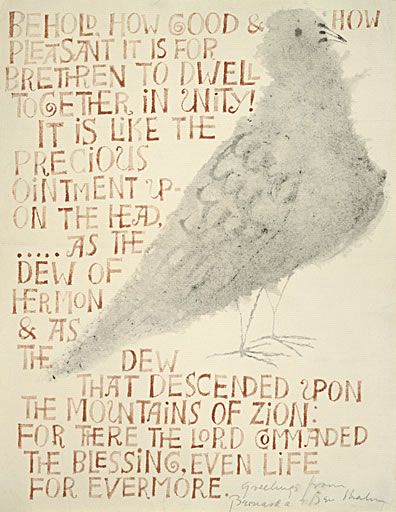 BEHOLD, HOW GOOD & HOW
PLEASANT IT IS FOR
BRETHREN TO DWELL
TOGETHER IN UNITY!
IT IS LIKE THE
PRECIOUS
OINTMENT UP-
ON THE HEAD,
..... AS THE
DEW OF
HERMON
& AS
THE DEW
THAT DESCENDED UPON
THE MOUNTAINS OF ZION:
FOR THERE THE LORD COMMADED
THE BLESSING, EVEN LIFE
FOR EVERMORE.
Greetings from
Bernarda + Ben Shahn